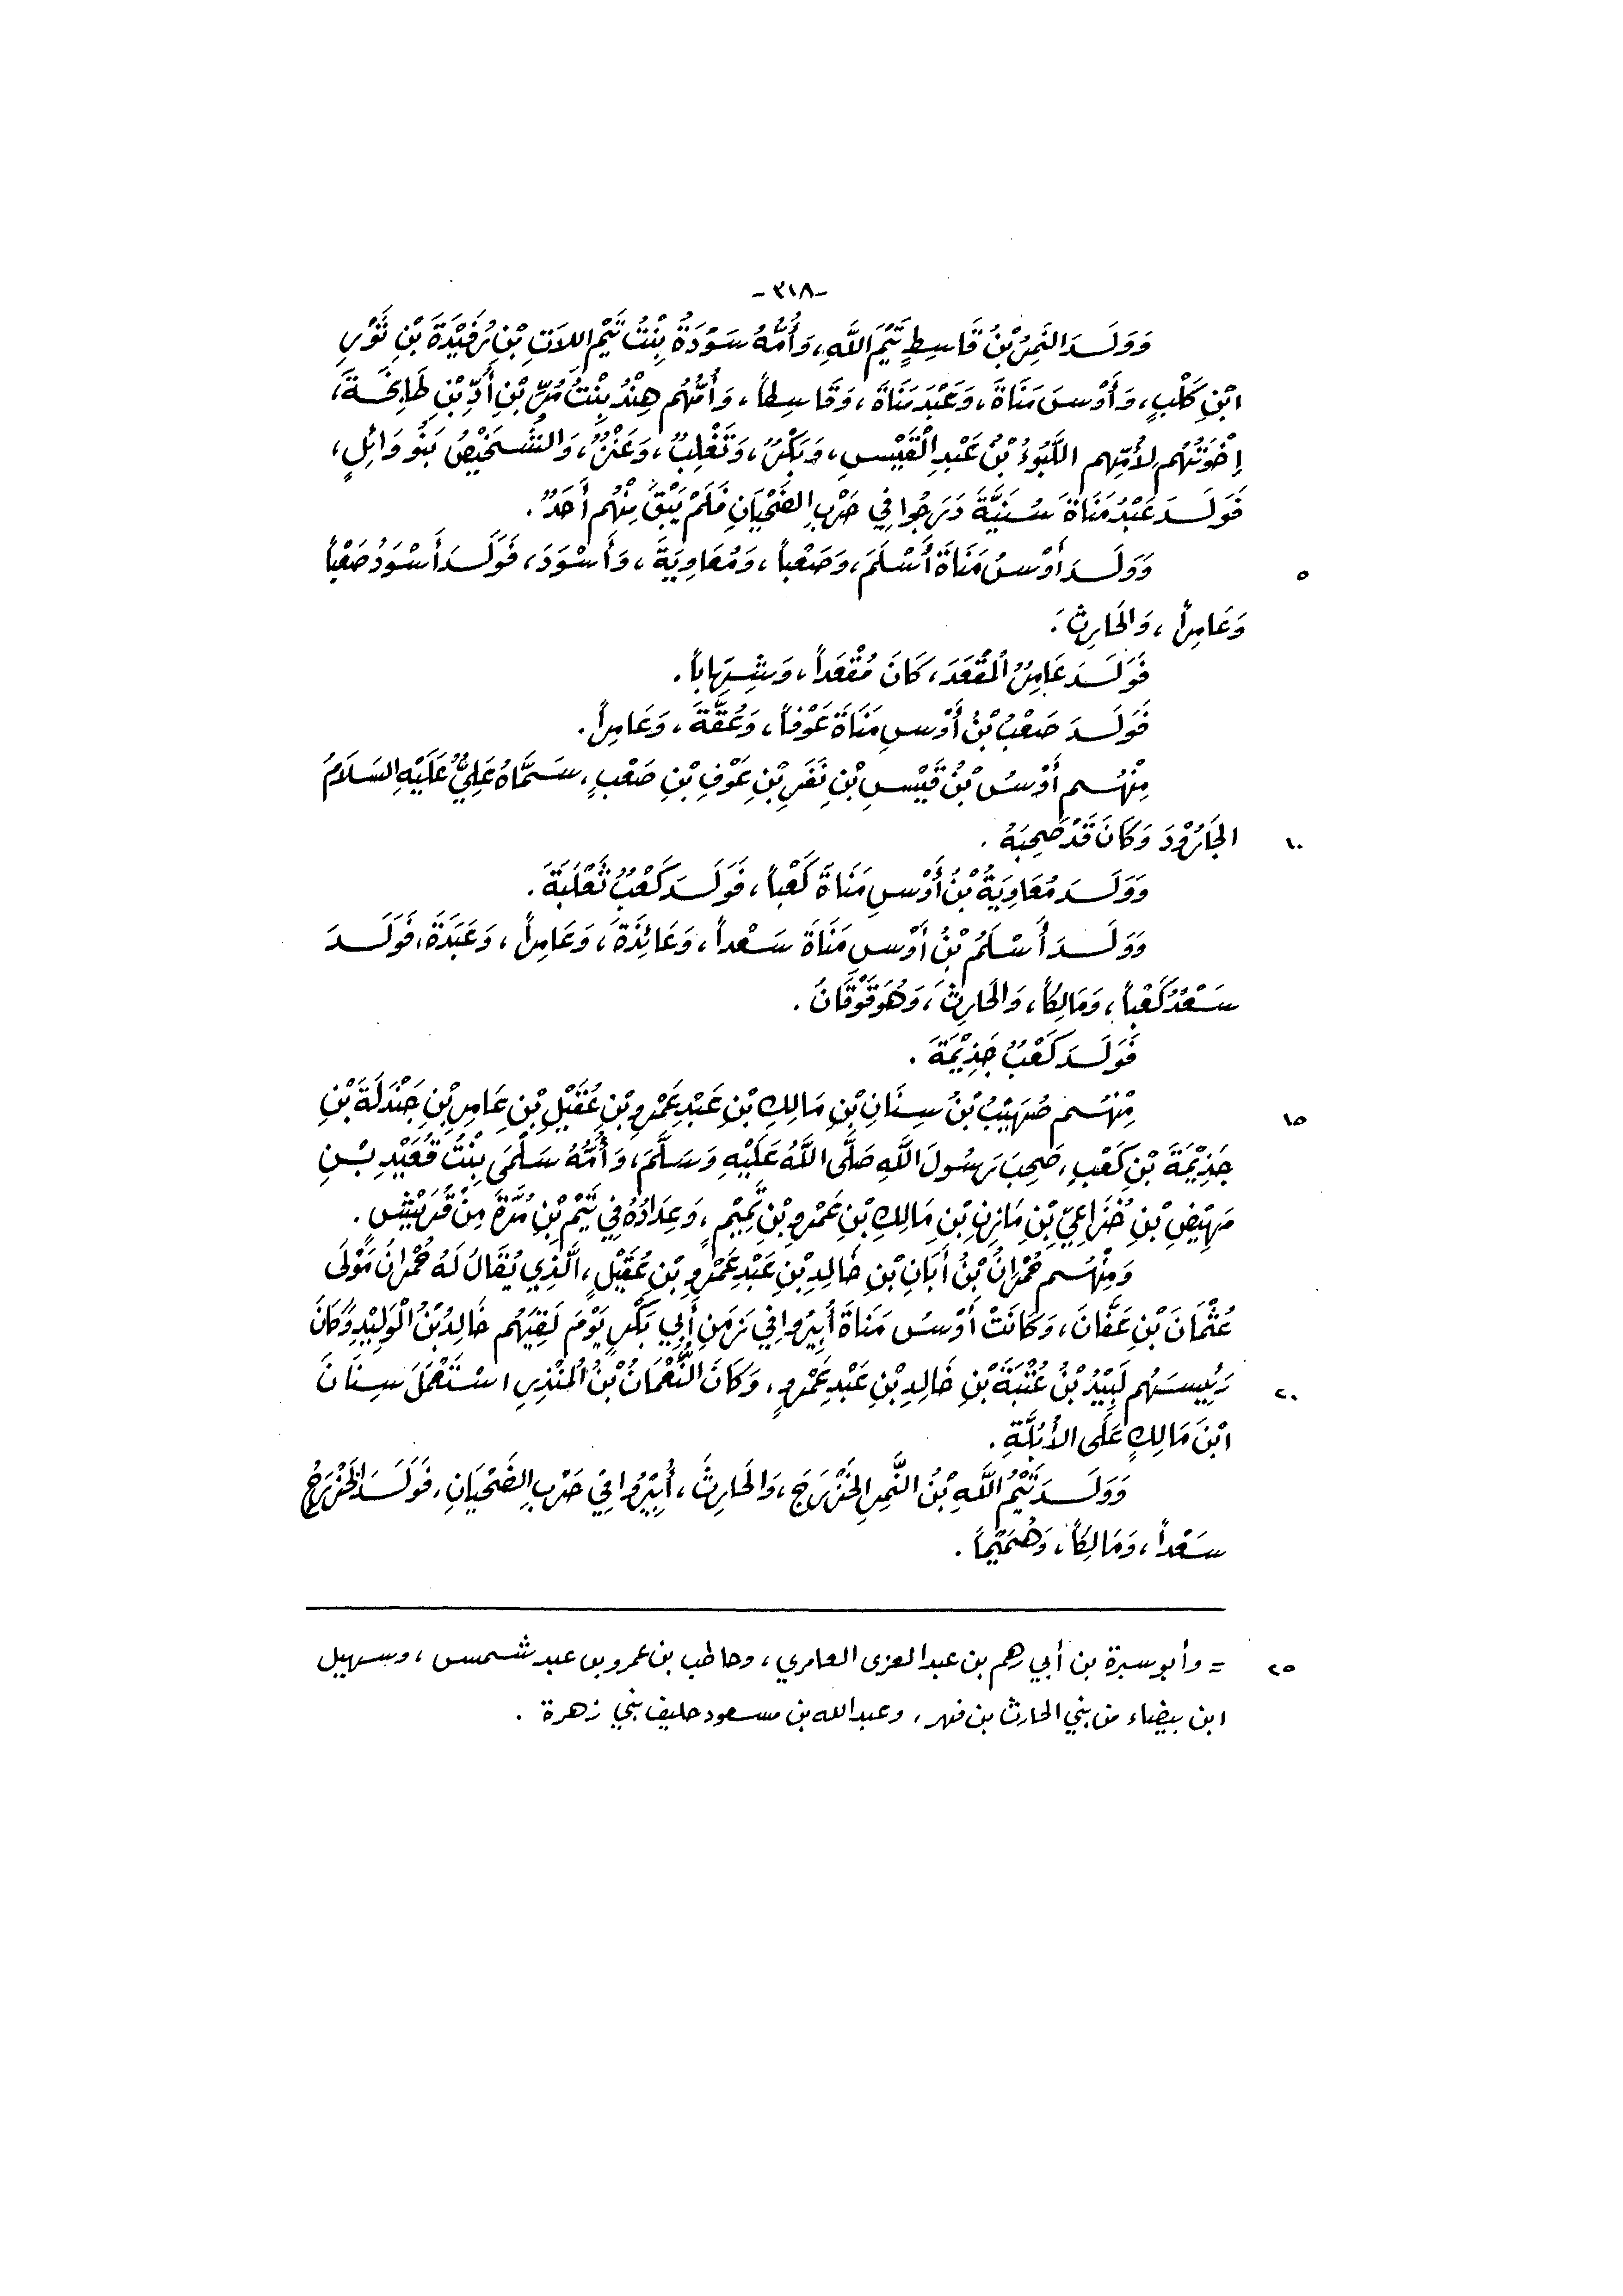 -٣١٨-
وَوَلَــدَ النَّمِرُ بْنُ قَاسِطٍ تَيْمَ اللَّهِ، وَأُمُّهُ سَوْدَةُ بِنْتُ تَيْمِ اللَّاتِ بْنِ رُفَيْدَةَ بْنِ ثَوْرِ
ابْنِ كَلْبٍ، وَأَوْسَ مَنَاةَ، وَعَبْدَ مَنَاةَ، وَقَاسِطاً، وَأُمُّهُم هِنْدُ بِنْتُ مُرِّ بْنِ أُدِّ بْنِ طَابِخَــةَ،
إِخْوَتُهُم لِأُمِّهِم اللَّبُوءُ بْنُ عَبْدِ الْقَيْسِ، وَبَكْرٌ، وَتَغْلِبُ، وَعَنْزٌ، وَالشُّخَيْصُ بَنُو وَائِلٍ،
فَوَلَــدَ عَبْدُ مَنَاةَ سُنَيَّةَ دَرَجُوا فِي حَرْبِ الضَّحْيَانِ فَلَمْ يَبْقَ مِنْهُم أَحَدٌ.
وَوَلَــدَ أَوْسُ مَنَاةَ أَسْلَمَ، وَصَعْباً، وَمُعَاوِيَةَ، وَأَسْوَدَ، فَوَلَــدَ أَسْوَدُ صَعْباً
٥
وَعَامِراً، وَالحَارِثَ.
فَوَلَــدَ عَامِرٌ المُقْعَدَ، كَانَ مُقْعَداً، وَشِهَاباً.
فَوَلَــدَ صَعْبُ بْنُ أَوْسِ مَنَاةَ عَوْفاً، وَعُقَّةَ، وَعَامِراً.
مِنْهُــم أَوْسُ بْنُ قَيْسِ بْنِ نَفَرِ بْنِ عَوْفِ بْنِ صَعْبٍ، سَمَّاهُ عَلِيٌّ عَلَيْهِ السَلَامُ
الجَارُوْدَ وَكَانَ قَدْ صَحِبَهُ.
١٠
وَوَلَــدَ مُعَاوِيَةُ بْنُ أَوْسِ مَنَاةَ كَعْباً، فَوَلَــدَ كَعْبٌ ثَعْلَبَةَ.
وَوَلَــدَ أَسْلَمُ بْنُ أَوْسِ مَنَاةَ سَعْداً، وَعَائِذَةَ، وَعَامِراً، وَعَبَدَةَ، فَوَلَــدَ
سَعْدٌ كَعْباً، وَمَالِكاً، وَالحَارِثَ، وَهُوَ قَوْقَانُ.
فَوَلَــدَ كَعْبٌ جَذِيْمَةَ.
مِنْهُــم صُهَيْبُ بْنُ سِنَانِ بْنِ مَالِكِ بْنِ عَبْدِ عَمْرِو بْنِ عُقَيْلِ بْنِ عَامِرِ بْنِ جَنْدَلَةَ بْنِ
١٥
جَذِيْمَةَ بْنِ كَعْبٍ، صَحِبَ رَسُولَ اللَّهِ صَلَّى اللَّهُ عَلَيْهِ وَسَلَّمَ، وَأُمُّهُ سَلْمَى بِنْتُ قُعَيْدِ بْــنِ
مَهِيْضِ بْنِ خُزَاعِيِّ بْنِ مَازِنِ بْنِ مَالِكِ بْنِ عَمْرِو بْنِ تَمِيْمٍ، وَعِدَادُهُ فِي تَيْمِ بْنِ مُرَّةَ مِنْ قُرَيْشٍ.
وَمِنْهُــم حُمْرَانُ بْنُ أَبَانِ بْنِ خَالِدِ بْنِ عَبْدِ عَمْرِو بْنِ عُقَيْلٍ، الَّذِي يُقَالُ لَهُ حُمْرَانُ مَوْلَى
عُثْمَانَ بْنِ عَفَّانَ، وَكَانَتْ أَوْسُ مَنَاةَ أُبِيْرُوا فِي زَمَنِ أَبِي بَكْرٍ يَوْمَ لَقِيَهُم خَالِدُ بْنُ الْوَلِيْدِ وَكَانَ
رَئِيسَهُم لَبِيْدُ بْنُ عُتْبَةَ بْنِ خَالِدِ بْنِ عَبْدِ عَمْرٍو، وَكَانَ النُّعْمَانُ بْنُ المُنْذِرِ اسْتَعْمَلَ سِنَانَ
٢٠
ابْنَ مَالِكٍ عَلَى الأُبُلَّةِ.
وَوَلَــدَ تَيْمُ اللَّهِ بْنُ النَّمِرِ الخَزْرَجَ، وَالحَارِثَ، أُبِيْرُوا فِي حَرْبِ الضَحْيَانِ، فَوَلَــدَ الخَزْرَجُ
سَعْداً، وَمَالِكاً، وَهُمَيْماً.
= وأبو سبرة بن أبي رهم بن عبد العزى العامري، وحاطب بن عمرو بن عبد شمس، وسهيل
٢٥
ابن بيضاء من بني الحارث بن فهر، وعبد الله بن مسعود حليف بني زهرة.